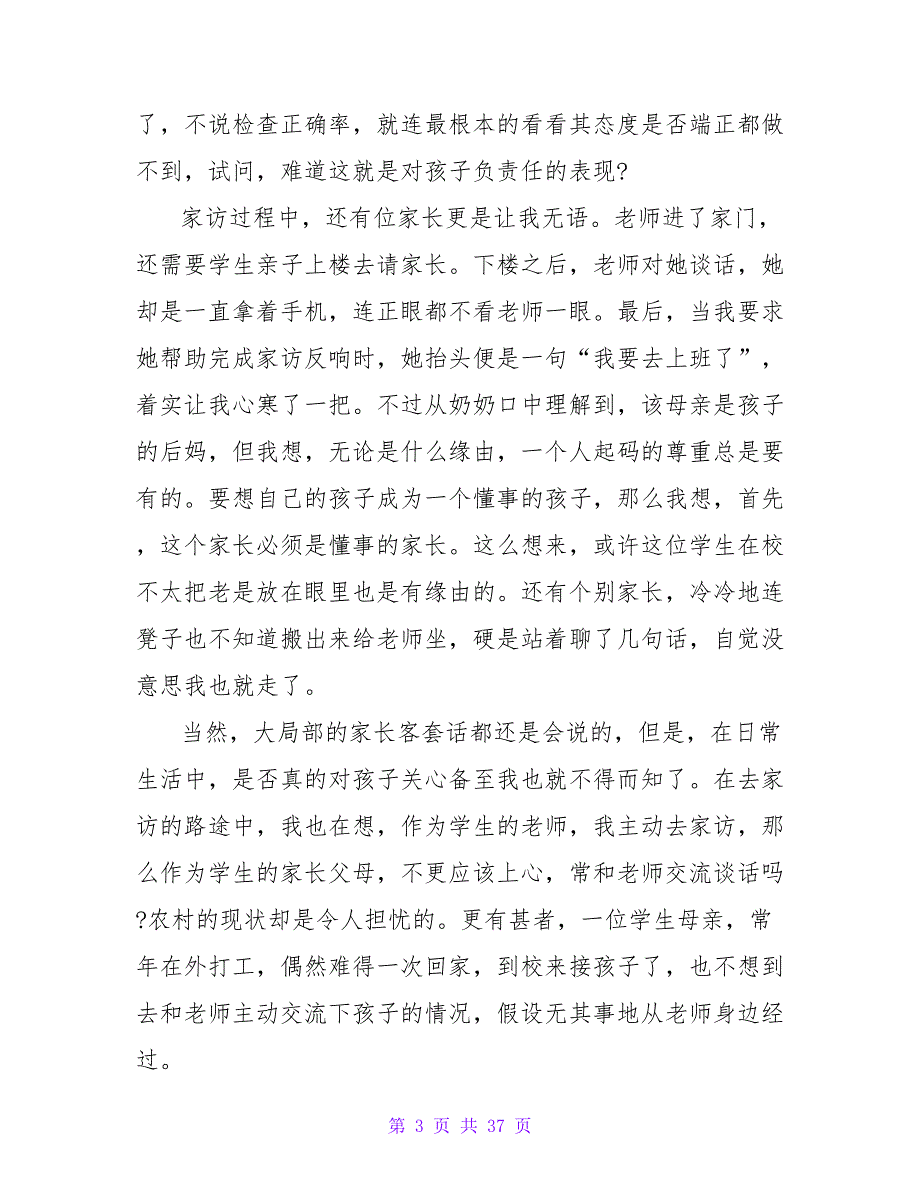 了，不说检查正确率，就连最根本的看看其态度是否端正都做
不到，试问，难道这就是对孩子负责任的表现?
家访过程中，还有位家长更是让我无语。老师进了家门，
还需要学生亲子上楼去请家长。下楼之后，老师对她谈话，她
却是一直拿着手机，连正眼都不看老师一眼。最后，当我要求
她帮助完成家访反响时，她抬头便是一句“我要去上班了”，
着实让我心寒了一把。不过从奶奶口中理解到，该母亲是孩子
的后妈，但我想，无论是什么缘由，一个人起码的尊重总是要
有的。要想自己的孩子成为一个懂事的孩子，那么我想，首先
，这个家长必须是懂事的家长。这么想来，或许这位学生在校
不太把老是放在眼里也是有缘由的。还有个别家长，冷冷地连
凳子也不知道搬出来给老师坐，硬是站着聊了几句话，自觉没
意思我也就走了。
当然，大局部的家长客套话都还是会说的，但是，在日常
生活中，是否真的对孩子关心备至我也就不得而知了。在去家
访的路途中，我也在想，作为学生的老师，我主动去家访，那
么作为学生的家长父母，不更应该上心，常和老师交流谈话吗
?农村的现状却是令人担忧的。更有甚者，一位学生母亲，常
年在外打工，偶然难得一次回家，到校来接孩子了，也不想到
去和老师主动交流下孩子的情况，假设无其事地从老师身边经
过。
第 3 页 共 37 页